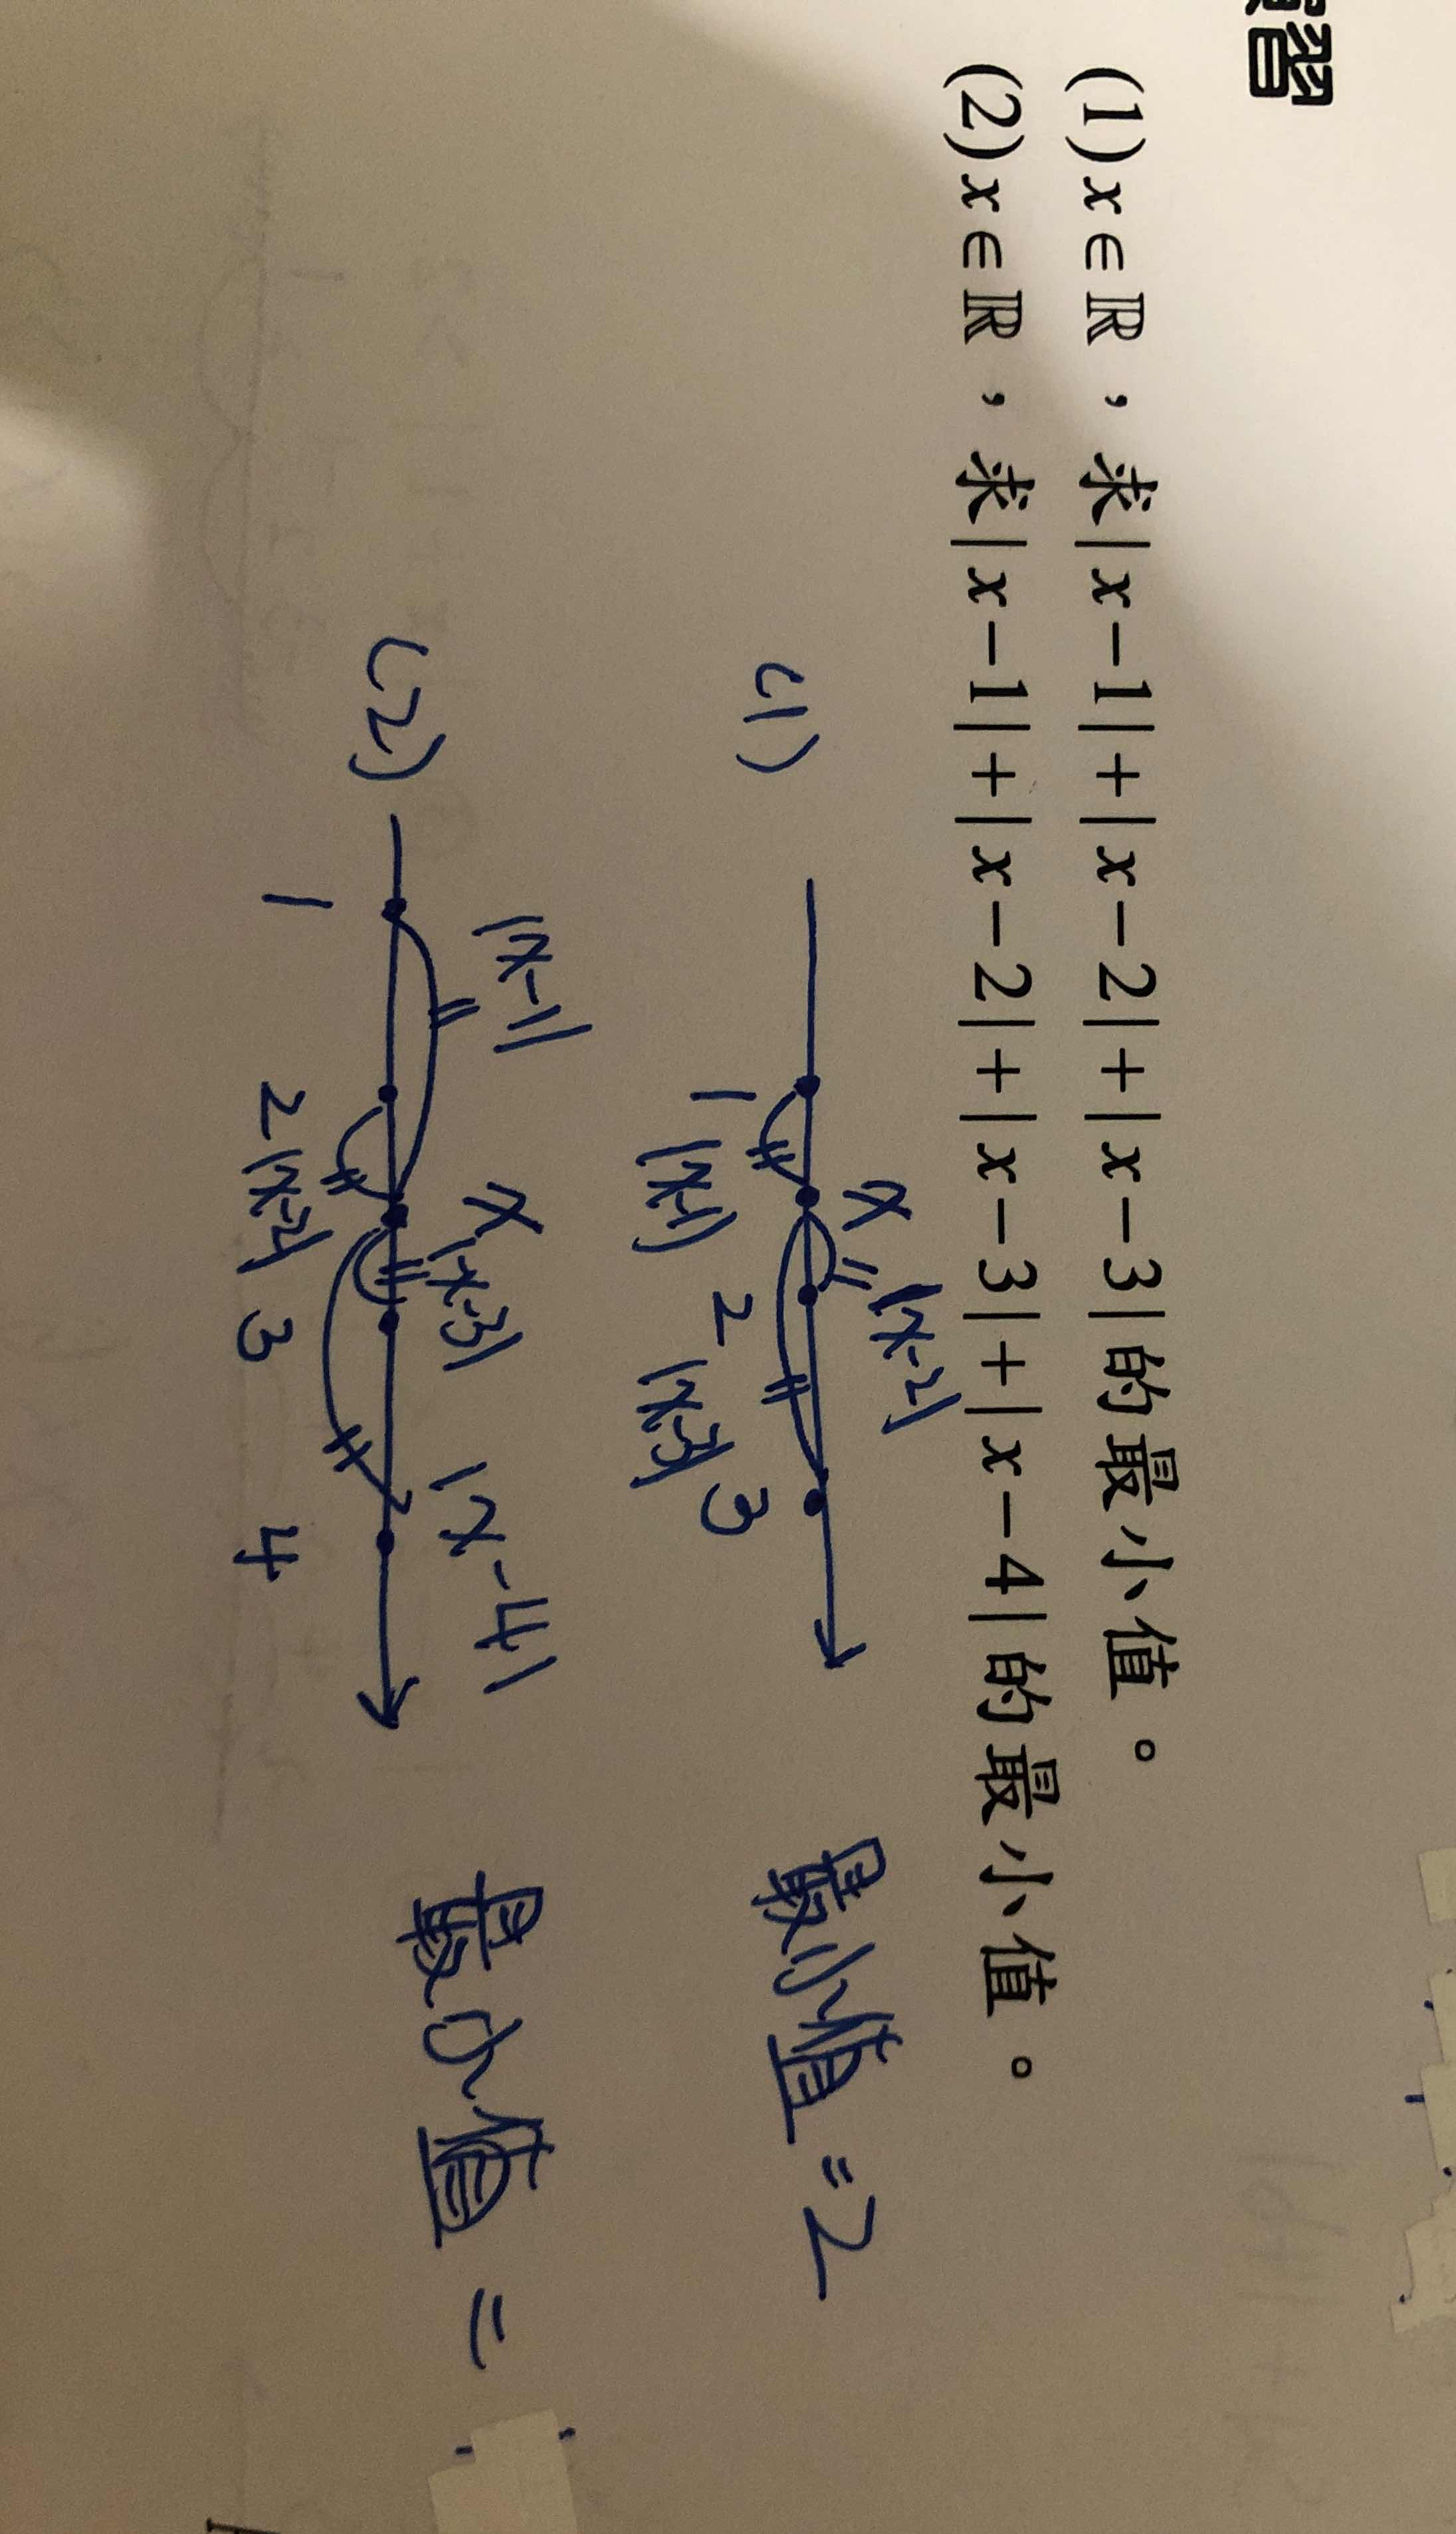 習
(1)x∈ℝ，求|x−1|+|x−2|+|x−3|的最小值。
(2)x∈ℝ，求|x−1|+|x−2|+|x−3|+|x−4|的最小值。
(1)
x |x-2|
1 |x-1| 2 |x-3| 3
最小值=2
(2)
|x-1| x |x-3| |x-4|
1 2 |x-2| 3 4
最小值=